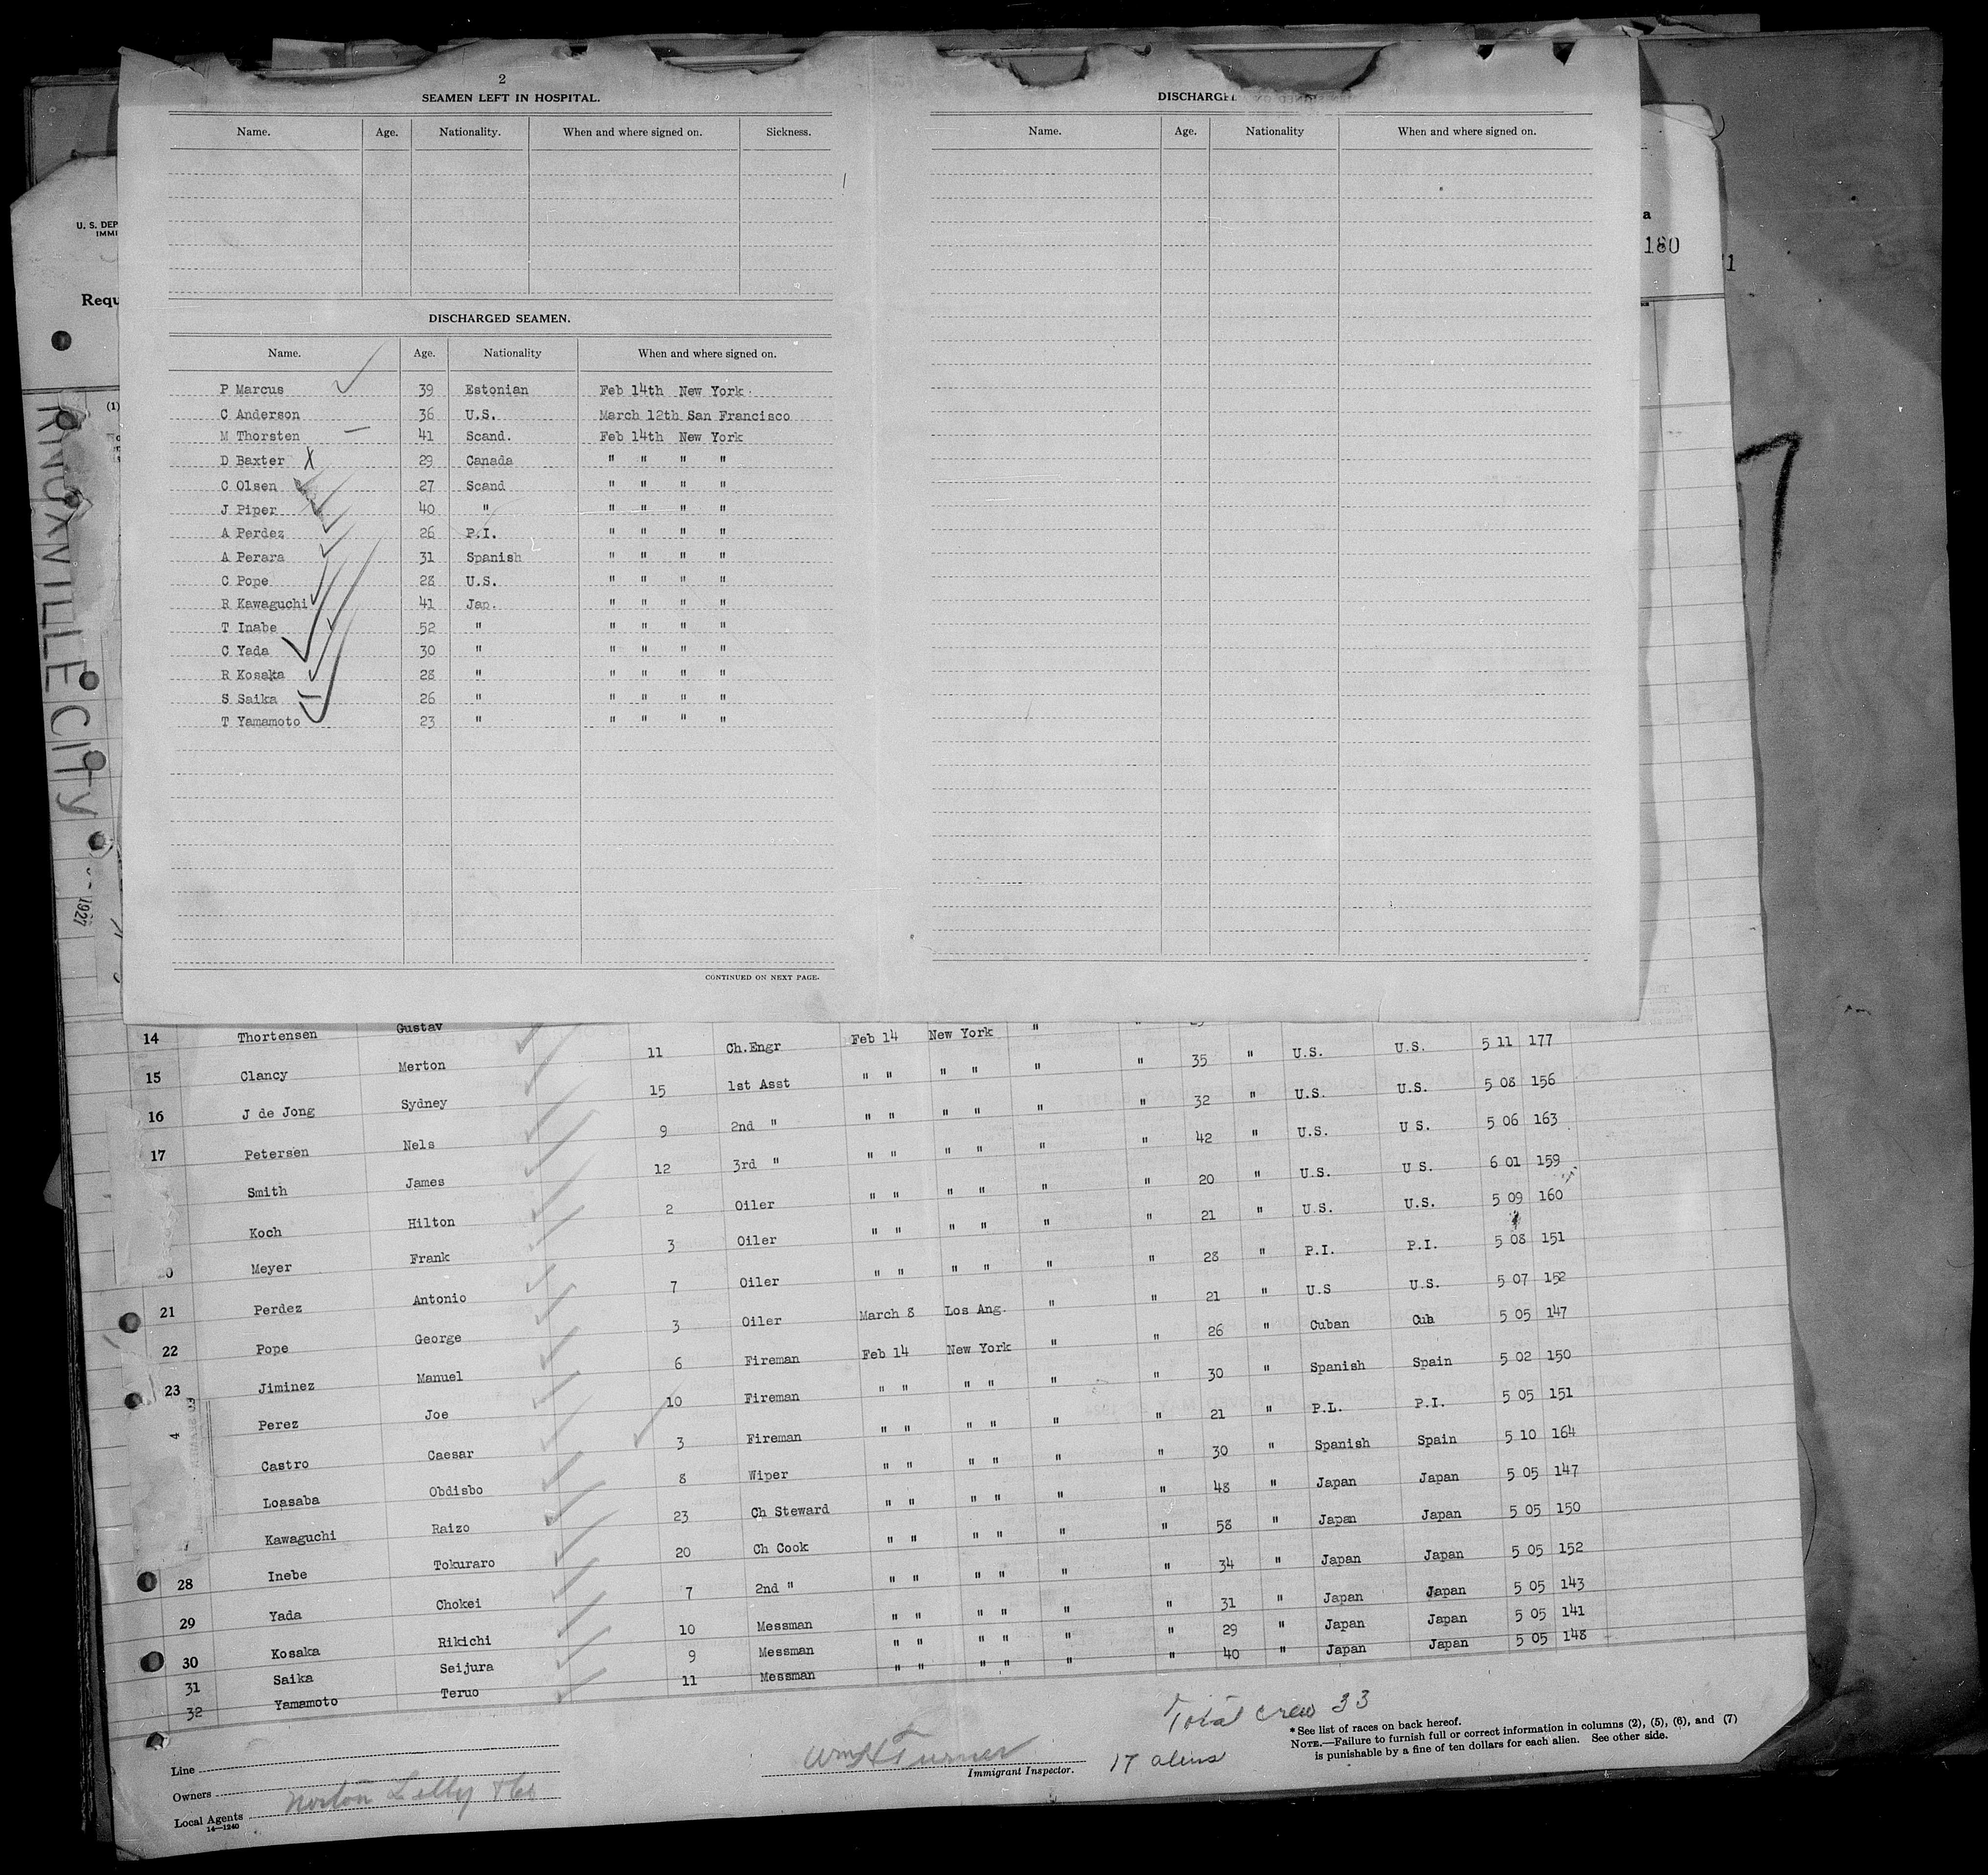 2
SEAMEN LEFT IN HOSPITAL.
Name. Age. Nationality. When and where signed on. Sickness.
DISCHARGED SEAMEN.
Name. Age. Nationality When and where signed on.
P Marcus 39 Estonian Feb 14th New York
C Anderson 36 U.S. March 12th San Francisco
M Thorsten 41 Scand. Feb 14th New York
D Baxter X 29 Canada " " " "
C Olsen 27 Scand " " " "
J Piper 40 " " " " "
A Perdez 26 P.I. " " " "
A Perara 31 Spanish " " " "
C Pope 28 U.S. " " " "
R Kawaguchi 41 Jap. " " " "
T Inabe 52 " " " " "
C Yada 30 " " " " "
R Kosaka 28 " " " " "
S Saika 26 " " " " "
T Yamamoto 23 " " " " "
CONTINUED ON NEXT PAGE.
DISCHARGE
Name. Age. Nationality When and where signed on.
U. S. DEP
IMMI
Requ
(1)
CITY
1927
a
180
1
14 Thortensen Gustav 11 Ch.Engr Feb 14 New York " "
15 Clancy Merton 15 1st Asst " " " " " " 35 " U.S. U.S. 5 11 177
16 J de Jong Sydney 9 2nd " " " " " " " 32 " U.S. U.S. 5 08 156
17 Petersen Nels 12 3rd " " " " " " " 42 " U.S. U S. 5 06 163
Smith James 2 Oiler " " " " " " 20 " U.S. U S. 6 01 159
Koch Hilton 3 Oiler " " " " " " 21 " U.S. U.S. 5 09 160
0 Meyer Frank 7 Oiler " " " " " " 28 " P.I. P.I. 5 08 151
21 Perdez Antonio 3 Oiler March 8 Los Ang. " " 21 " U.S U.S. 5 07 152
22 Pope George 6 Fireman Feb 14 New York " " 26 " Cuban Cub 5 05 147
23 Jiminez Manuel 10 Fireman " " " " " " 30 " Spanish Spain 5 02 150
4 Perez Joe 3 Fireman " " " " " " 21 " P.L. P.I. 5 05 151
Castro Caesar 8 Wiper " " " " " " 30 " Spanish Spain 5 10 164
Loasaba Obdisbo 23 Ch Steward " " " " " " 48 " Japan Japan 5 05 147
Kawaguchi Raizo 20 Ch Cook " " " " " " 58 " Japan Japan 5 05 150
28 Inebe Tokuraro 7 2nd " " " " " " " 34 " Japan Japan 5 05 152
29 Yada Chokei 10 Messman " " " " " " 31 " Japan Japan 5 05 143
30 Kosaka Rikichi 9 Messman " " " " " " 29 " Japan Japan 5 05 141
31 Saika Seijura 11 Messman " " " " " " 40 " Japan Japan 5 05 148
32 Yamamoto Teruo
Total crew 33
17 aliens
Line
Owners
Local Agents Norton Lilly & Co
14—1240
Wm H Turner
Immigrant Inspector.
* See list of races on back hereof.
NOTE.—Failure to furnish full or correct information in columns (2), (5), (6), and (7)
is punishable by a fine of ten dollars for each alien. See other side.